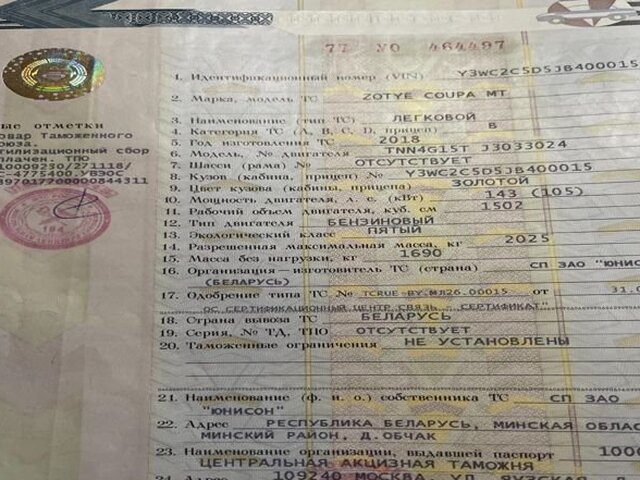 77 УО 464497
1. Идентификационный номер (VIN) Y3WC2C5D5JB400015
2. Марка, модель ТС ZOTYE COUPA MT
3. Наименование (тип ТС) ЛЕГКОВОЙ
4. Категория ТС (А, В, С, D, прицеп) B
5. Год изготовления ТС 2018
6. Модель, № двигателя TNN4G15T J3033024
7. Шасси (рама) № ОТСУТСТВУЕТ
8. Кузов (кабина, прицеп) № Y3WC2C5D5JB400015
9. Цвет кузова (кабины, прицепа) ЗОЛОТОЙ
10. Мощность двигателя, л. с. (кВт) 143 (105)
11. Рабочий объем двигателя, куб. см 1502
12. Тип двигателя БЕНЗИНОВЫЙ
13. Экологический класс ПЯТЫЙ
14. Разрешенная максимальная масса, кг 2025
15. Масса без нагрузки, кг 1690
16. Организация—изготовитель ТС (страна) СП ЗАО "ЮНИС
(БЕЛАРУСЬ)
17. Одобрение типа ТС № ТСRUE-BY.МЛ26.00015 от 31.0
ОС СЕРТИФИКАЦИОННЫЙ ЦЕНТР СВЯЗЬ - СЕРТИФИКАТ"
18. Страна вывоза ТС БЕЛАРУСЬ
19. Серия, № ТД, ТПО ОТСУТСТВУЕТ
20. Таможенные ограничения НЕ УСТАНОВЛЕНЫ
21. Наименование (ф. и. о.) собственника ТС СП ЗАО
"ЮНИСОН"
22. Адрес РЕСПУБЛИКА БЕЛАРУСЬ, МИНСКАЯ ОБЛАС
МИНСКИЙ РАЙОН, Д.ОБЧАК
23. Наименование организации, выдавшей паспорт 1000
ЦЕНТРАЛЬНАЯ АКЦИЗНАЯ ТАМОЖНЯ
24. Адрес 109240 МОСКВА, УЛ. ЯУЗСКАЯ, Д
ые отметки
овар Таможенного
оюза.
тилизационный сбор
плачен. ТПО
10009230/271118/
С-4775400.УВЭОС
8970177000000844311